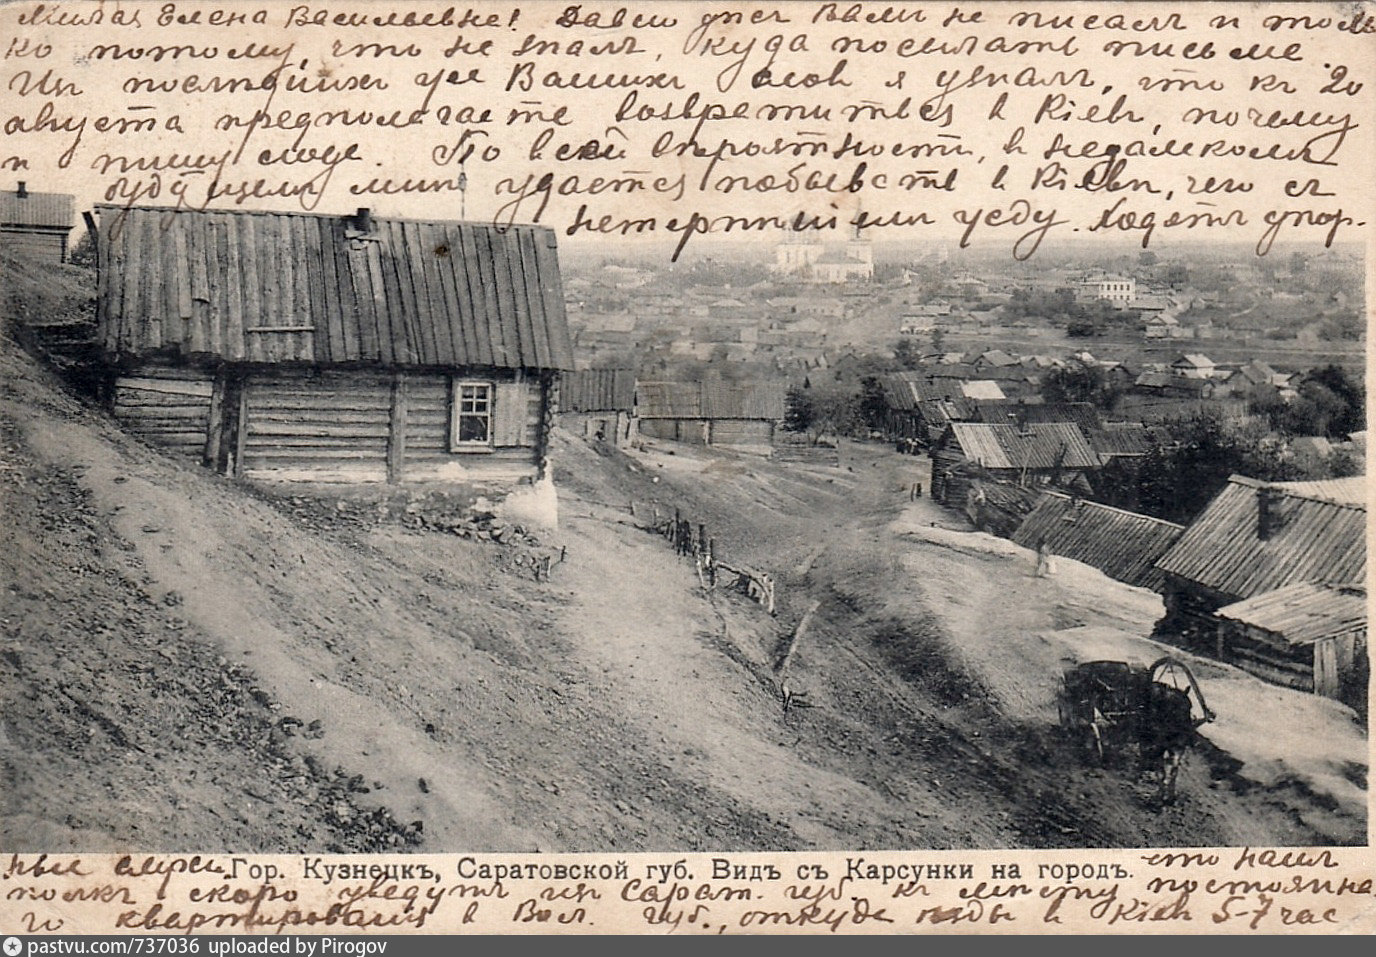 Милая Елена Васильевна! Давно уже Вамъ не писалъ и толь
ко потому, что не зналъ, куда посылать письма.
Изъ послѣднихъ же Вашихъ словъ я узналъ, что къ 20
августа предполагаете возвратиться в Кіевъ, почему
и пишу сюда. По всей вѣроятности, в недалекомъ
будущемъ мнѣ удастся побывать в Кіевѣ, чего съ
нетерпѣніемъ жду. Ходятъ упор-
ные слухи, что нашъ
Гор. Кузнецкъ, Саратовской губ. Видъ съ Карсунки на городъ.
полкъ скоро уведутъ изъ Сарат. губ. къ мѣсту постоянна
го квартированія в Вол. губ., откуда ѣзды в Кіевъ 5-7 час
pastvu.com/737036 uploaded by Pirogov